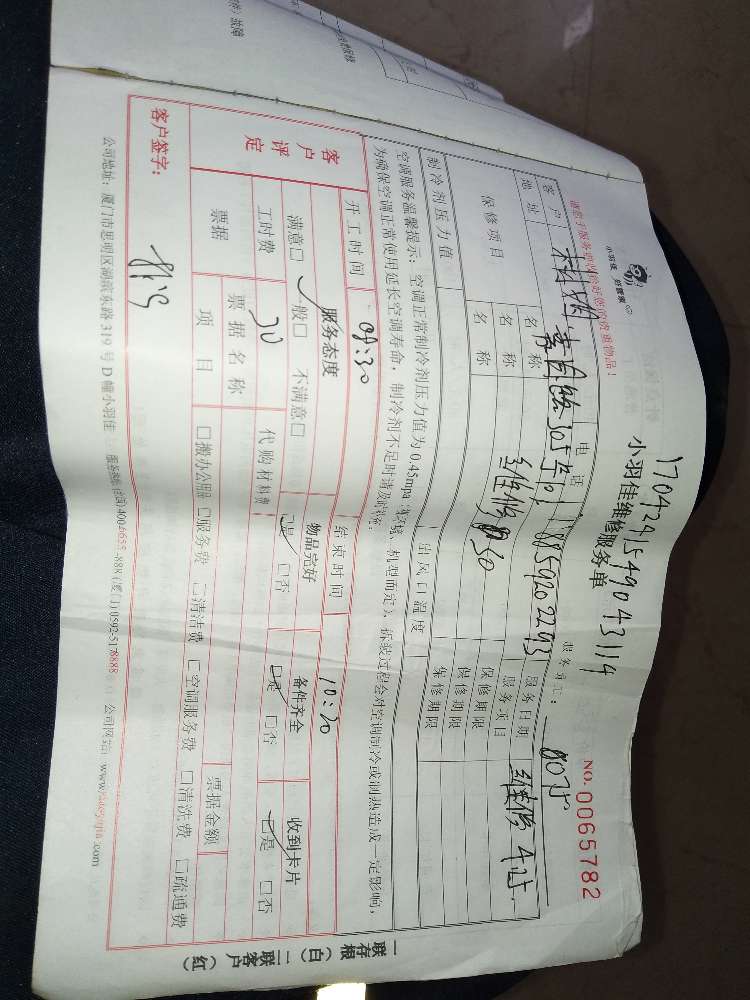 小羽佳 好管家
1704291549043114
小羽佳维修服务单
NO. 0065782
请您于服务前收拾好您的贵重物品！
服务员工：
客户
电话
18859202293
服务日期
地址
名称
服务项目
保修项目
名称
保修期限
名称
30
保修期限
保修期限
制冷剂压力值
出风口温度
空调服务温馨提示：空调正常制冷剂压力值为0.45mpa（视环境、机型而定），拆装过程会对空调制冷或制热造成一定影响，
为确保空调正常使用延长空调寿命，制冷剂不足时请及时
开工时间
09:30
结束时间
10:30
客户评定
服务态度
物品完好
备件齐全
收到卡片
满意□ 一般□ 不满意□
□是 □否
□是 □否
□是 □否
工时费
30
代购材料费
票据
票据名称
票据金额
项目
□搬办公服 □服务费 □清洁费 □空调服务费 □清洗费 □疏通费
客户签字：
公司地址：厦门市思明区湖滨东路319号D幢小羽佳
服务热线：(全国)4006655-888(厦门)0592-5178888
公司网站：www.xiaoyujia.com
一联存根（白）二联客户（红）